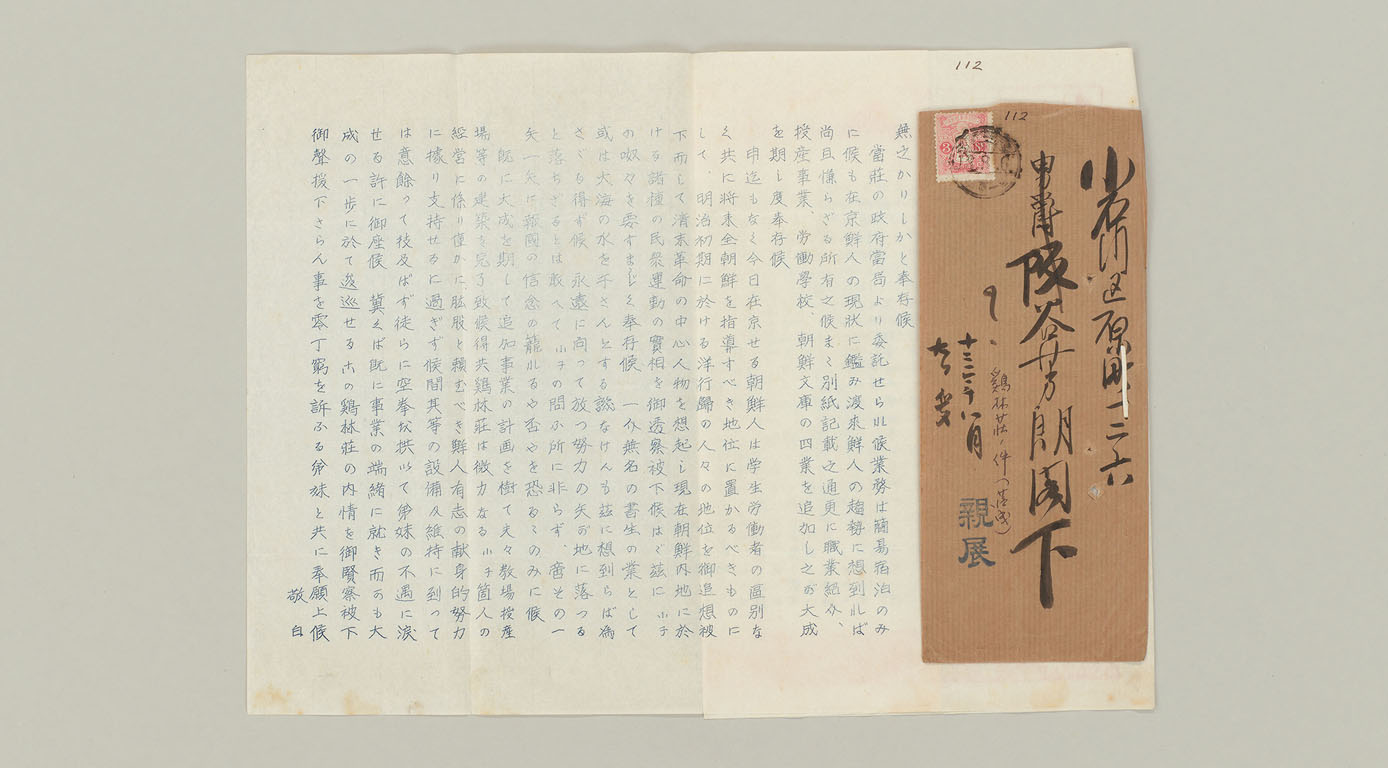 112
112
小石川区原町一二六
男爵 阪谷芳郎閣下
鶏林荘ノ件
親展
無之かりしかと奉存候
當莊の政府當局より委託せられ候業務は簡易宿泊のみ
に候も在京鮮人の現狀に鑑み渡來鮮人の趨勢に想到れば
尚且慊らざる所有之候まゝ別紙記載之通更に職業紹介、
授産事業、労働學校、朝鮮文庫の四業を追加し之が大成
を期し度奉存候
申迄もなく今日在京せる朝鮮人は学生労働者の區別な
く共に将来全朝鮮を指導すべき地位に置かるべきものに
して、明治初期に於ける洋行歸の人々の地位を御追想被
下而して清末革命の中心人物を想起し現在朝鮮内地に於
ける諸種の民衆運動の實相を御透察被下候はゞ茲に小子
の呶々を要すまじく奉存候 一介無名の書生の業として
或は大海の水を干さんとする譏なけんも茲に想到らば為
さざるを得ず候 永遠に向って放つ努力の矢が地に落つる
と落ちざるとは敢へて小子の問ふ所に非らず、啻その一
矢一矢に報國の信念の籠れるや否やを恐るゝのみに候
既に大成を期して追加事業の計画を樹て夫々教場授産
場等の建築を完了致候得共鶏林荘は微力なる小子箇人の
經営に係り僅かに股肱と頼むべき鮮人有志の献身的努力
に據り支持せるに過ぎず候間其等の設備及維持に到って
は意餘って技及ばず徒らに空拳を拱いて弟妹の不遇に涙
せる許に御座候 冀くば既に事業の端緒に就き而かも大
成の一歩に於て逡巡せる右の鶏林莊の内情を御賢察被下
御聲援下さらん事を零丁窮を訴ふる弟妹と共に奉願上候
敬白